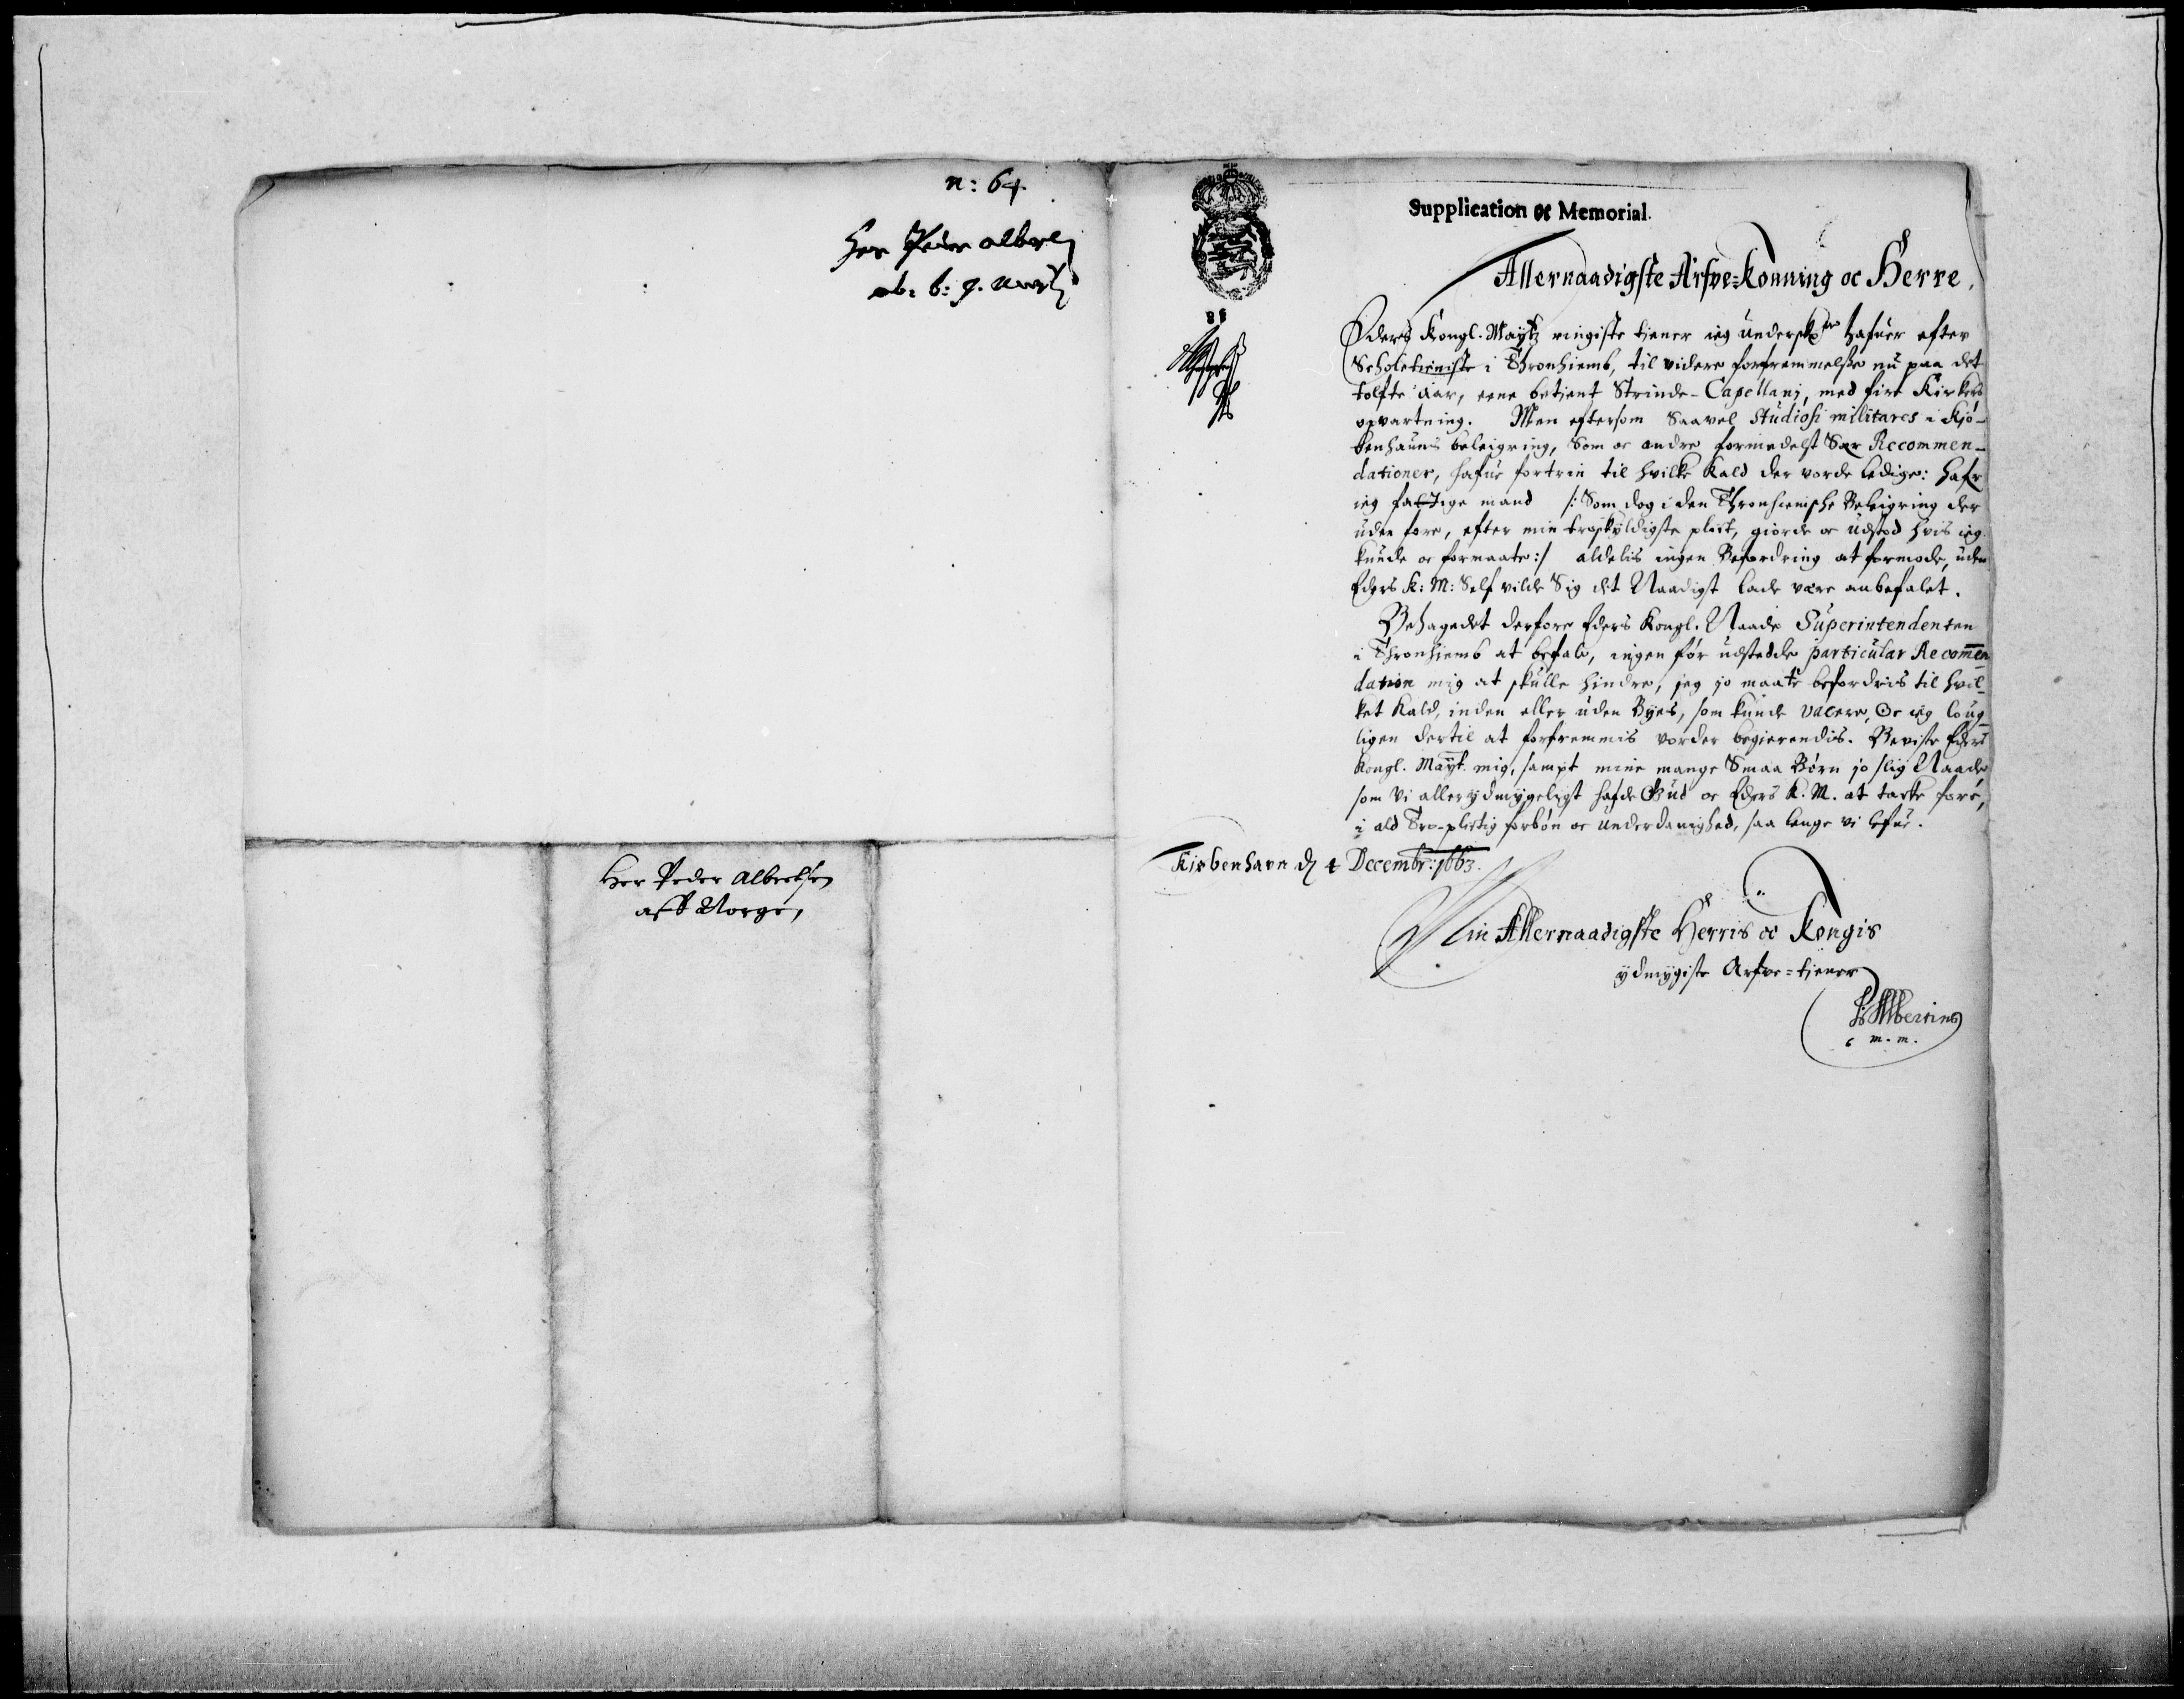 n: 64.
Her Peder Albertß
ab: b: 9. Martij
Her Peder Albertsen
aff Norge,
Supplication oc Memorial.
Allernaadigste Arfve-Konning oc Herre,
Eders Kongl. Maytz ringiste tiener ieg underskr hafuer efter
Scholetieniste i Thronhiemb, til videre forfremmelse nu paa det
tolfte aar, eene betient Strinde-Capellanj, med fire Kirkers
opvartning. Men eftersom Saavel Studiosi militares i Kjø-
benhauns beleigring, Som oc andre formedelst Sær Recommen-
dationer, hafue fortrin til hvilke Kald der vorde ledige: hafr
ieg fattige mand /: Som dog i den Thronhiemske Beleigring der
uden fore, efter min troskyldigste plict, giorde oc udstod hvis ieg
kunde oc formaate :/ aldelis ingen Befordring at formode, uden
Eders K: M: Self vilde Sig det Naadigst lade være anbefalet.
Behagedet derfore Eders Kongl. Naade Superintendenten
i Thronhiemb at befale, ingen før udstedde particular Recommen
dation mig at skulle hindre, jeg jo maate befordris til hvil-
ket Kald, inden eller uden Byes, som kunde vacere, Oc ieg loug-
ligen dertil at forfremmis vorder begierendis. Beviste Eders
Kongl. Mayt. mig, sampt mine mange Smaa Børn jo slig Naade,
som Vi allerydmygeligst hafde Gud oc Eders K. M. at tacke fore,
i ald Tro-plictig forbøn oc underdanighed, saa lenge vi lefue.
Kiøbenhavn d 4 Decembr: 1663.
Min Allernaadigste Herris oc Kongis
ydmygiste Arfve-tiener
P: Albertins
m. m.